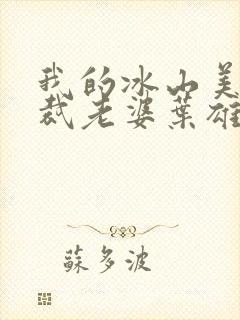 我的冰山美
裁老婆葉雄
蘇多波